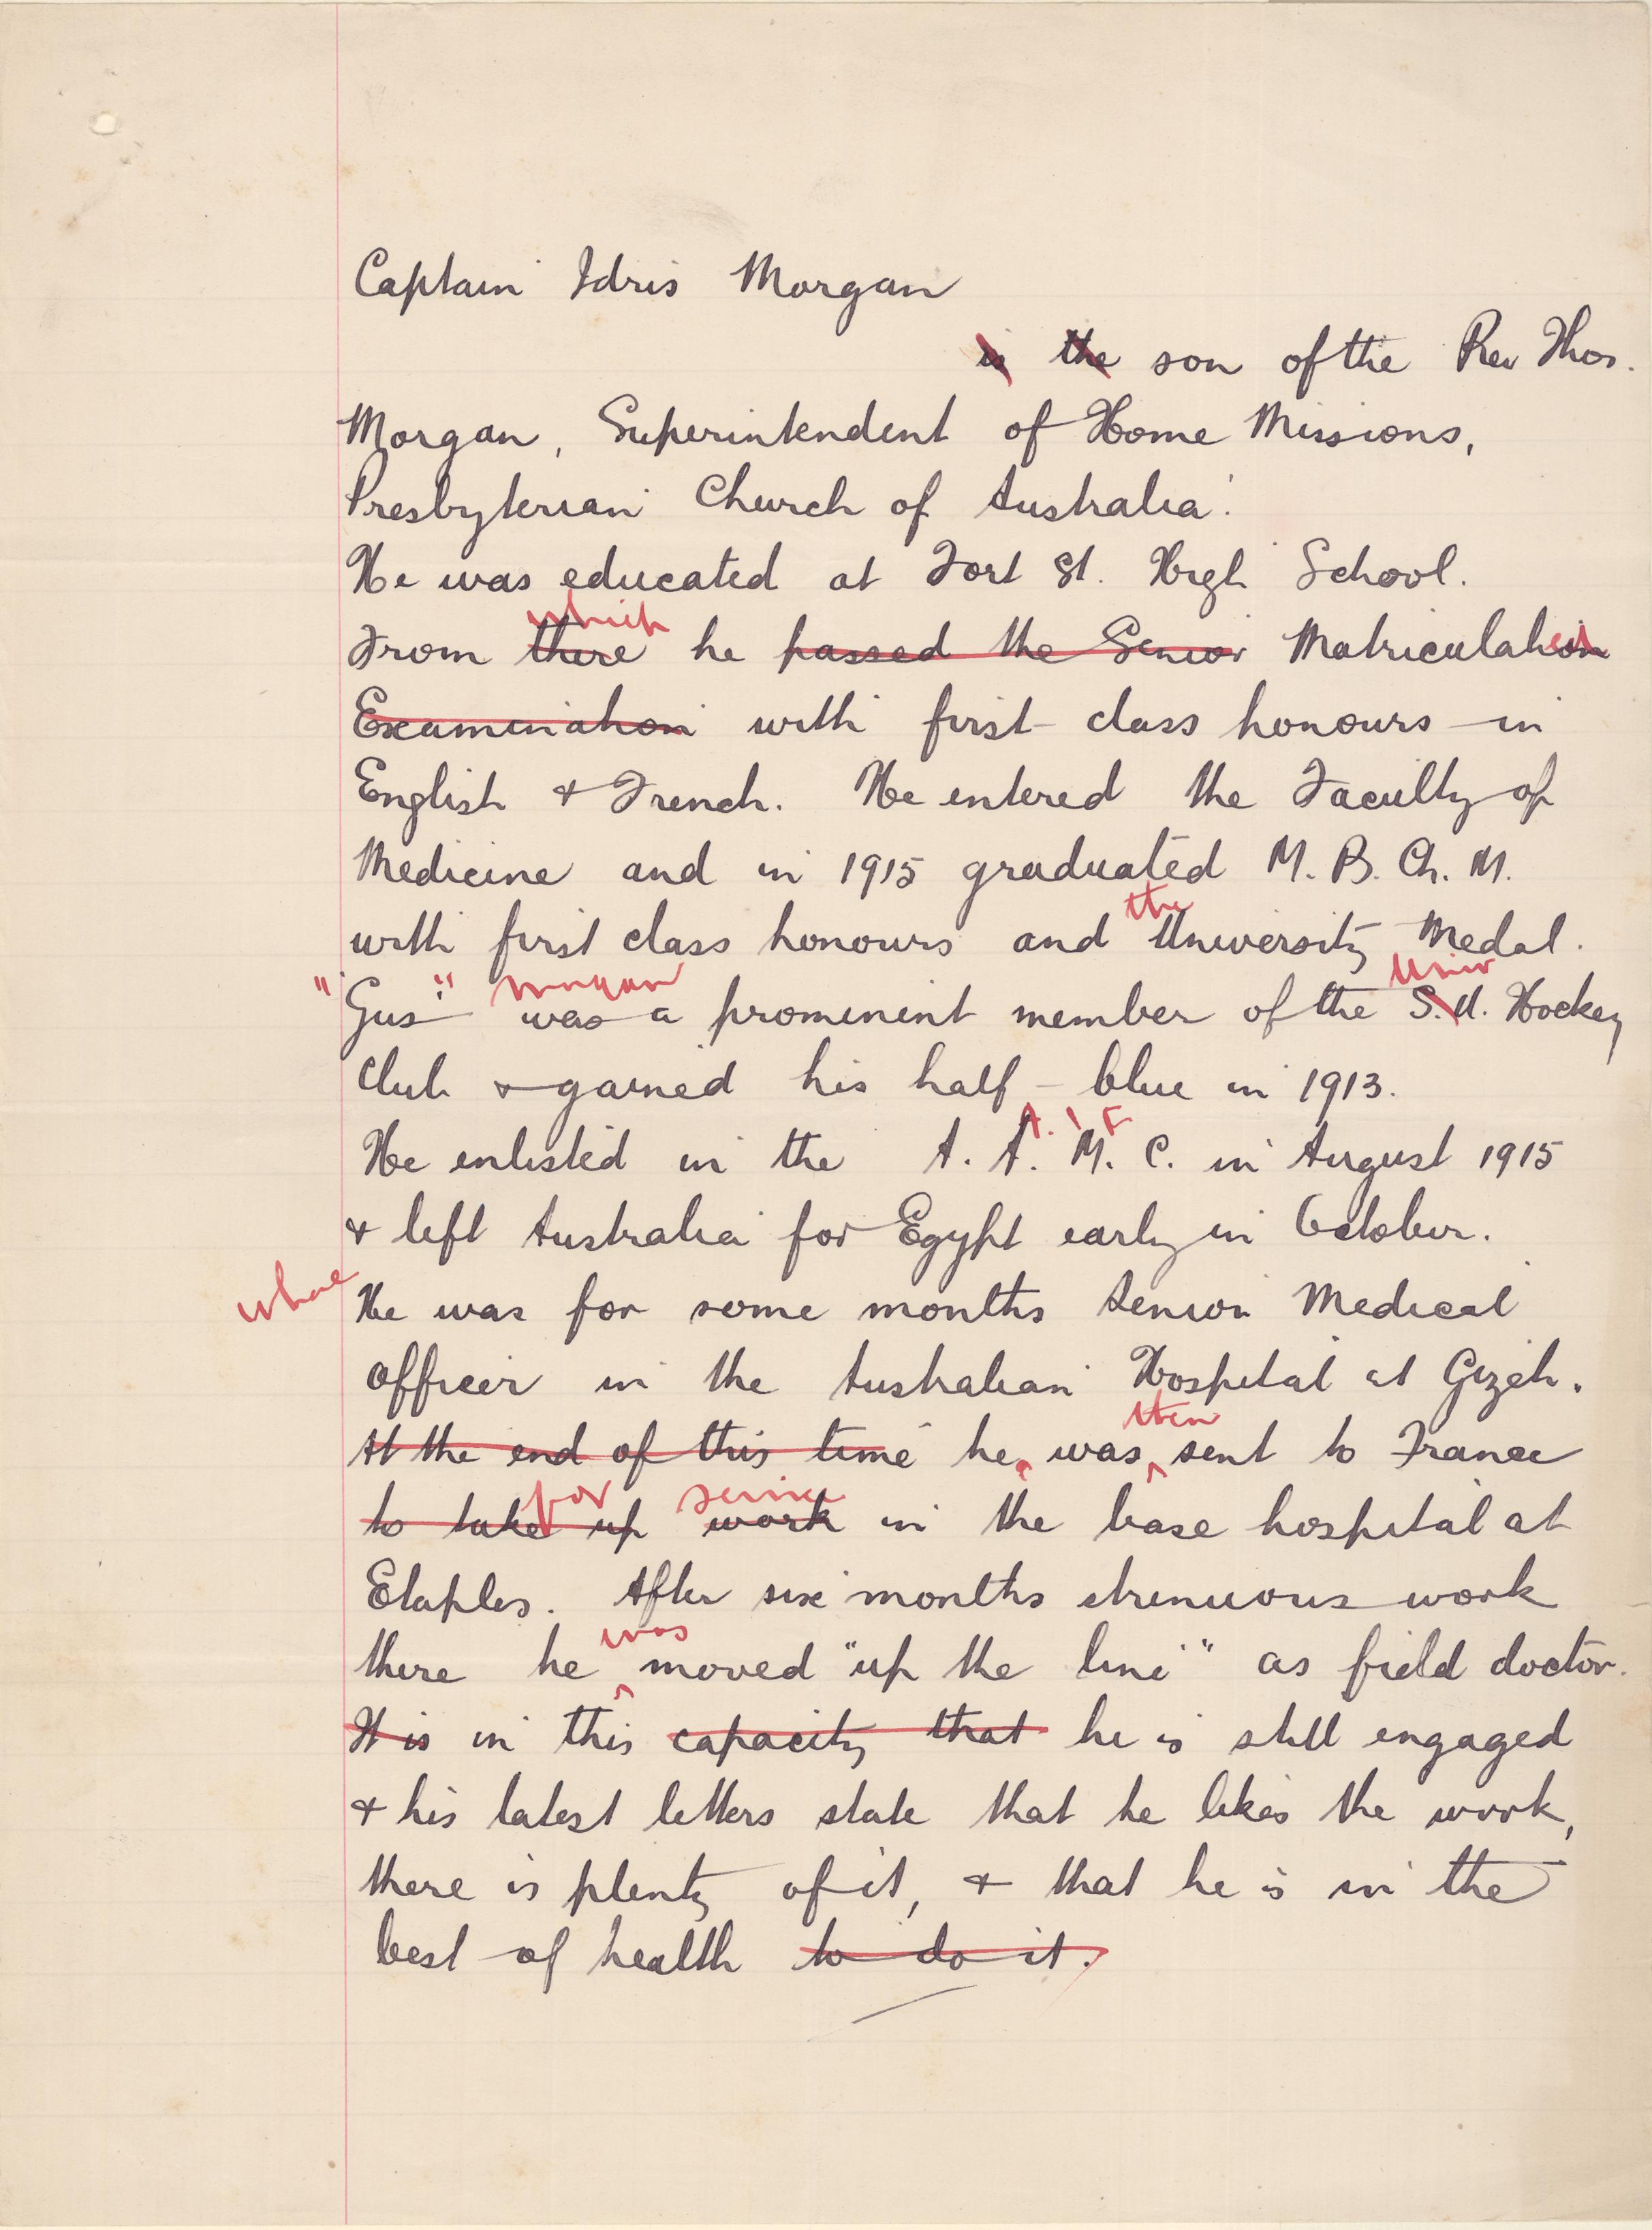 Captain Idris Morgan
is the son of the Rev Thos.
Morgan, Superintendent of Home Missions,
Presbyterian Church of Australia.
He was educated at Fort St. High School.
which
From there he passed the Senior Matriculation
Examination with first class honours in
English & French. He entered the Faculty of
Medicine and in 1915 graduated M. B. Ch. M.
the
with first class honours and University Medal.
Morgan Univ
"Gus" was a prominent member of the S.U. Hockey
Club & gained his half-blue in 1913.
A. I F
He enlisted in the A. A. M. C. in August 1915
& left Australia for Egypt early in October.
where
He was for some months Senior Medical
Officer in the Australian Hospital at Gizeh.
then
At the end of this time he was sent to France
for service
to take up work in the base hospital at
Etaples. After six months strenuous work
was
there he moved "up the line" as field doctor.
It is in this capacity that he is still engaged
& his latest letters state that he likes the work,
there is plenty of it, & that he is in the
best of health to do it.